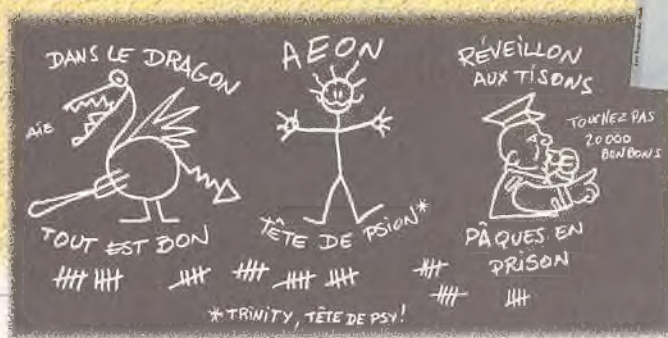 DANS LE DRAGON
AÏE
TOUT EST BON
AEON
TÊTE DE PSION*
RÉVEILLON
AUX TISONS
TOUCHEZ PAS
20000
BONBONS
PÂQUES EN
PRISON
*TRINITY, TÊTE DE PSY!